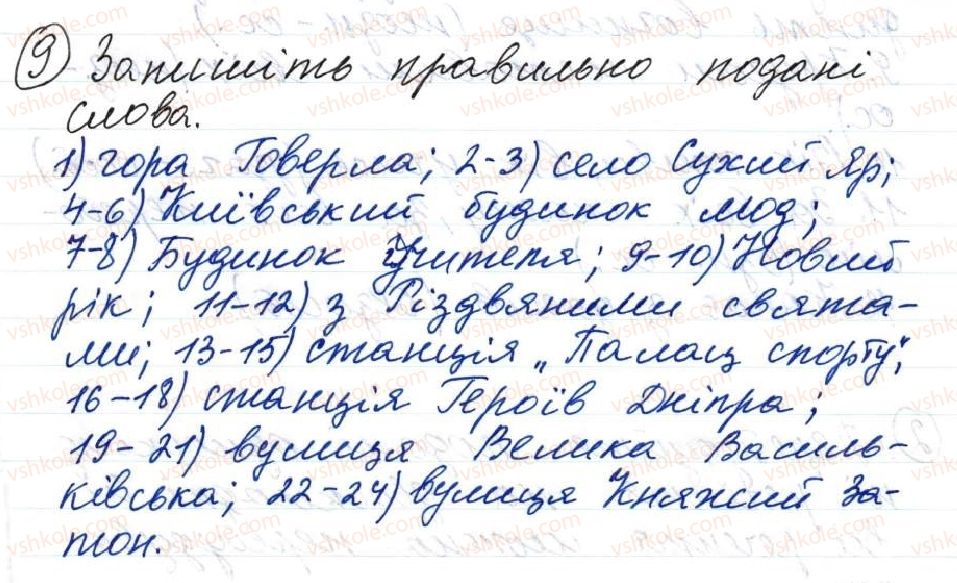 9 Запишіть правильно подані
слова.
1) гора Говерла; 2-3) село Сухий Яр;
4-6) Київський будинок мод;
7-8) Будинок Учителя; 9-10) Новий
рік; 11-12) з Різдвяними свята-
ми; 13-15) станція „Палац спорту";
16-18) станція Героїв Дніпра;
19-21) вулиця Велика Василь-
ківська; 22-24) вулиця Княжий За-
тон.